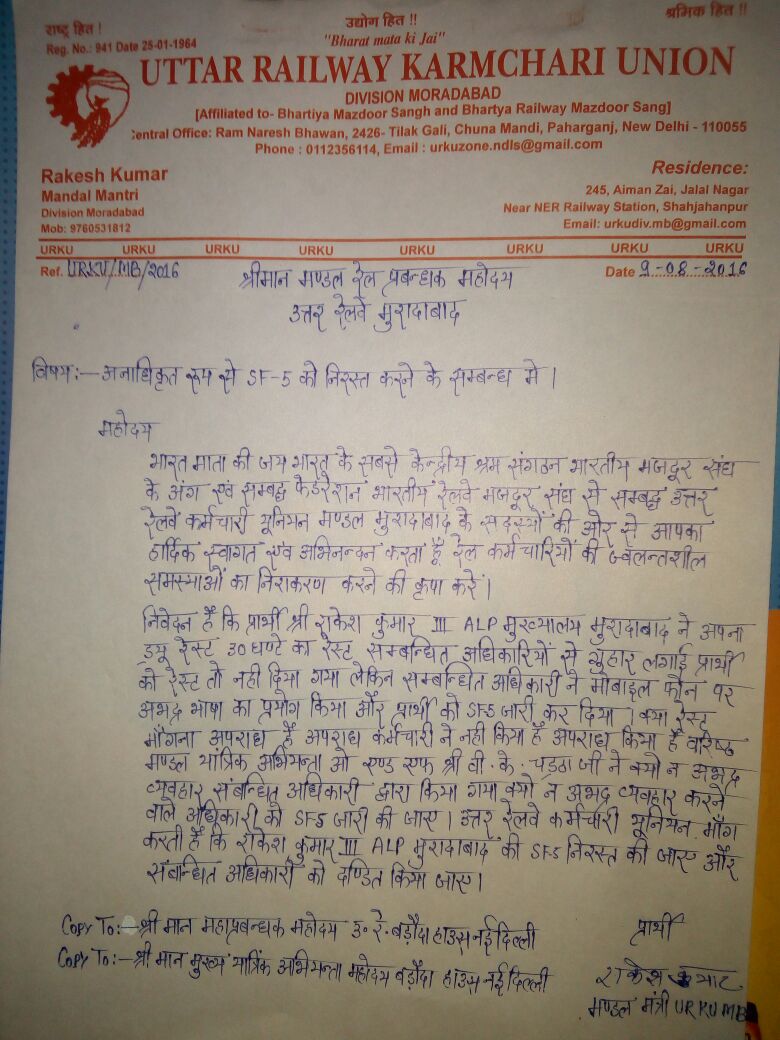 राष्ट्र हित !
उद्योग हित !!
श्रमिक हित !!
Reg. No.: 941 Date 25-01-1964
"Bharat mata ki Jai"
UTTAR RAILWAY KARMCHARI UNION
DIVISION MORADABAD
[Affiliated to- Bhartiya Mazdoor Sangh and Bhartya Railway Mazdoor Sang]
Central Office: Ram Naresh Bhawan, 2426- Tilak Gali, Chuna Mandi, Paharganj, New Delhi - 110055
Phone : 0112356114, Email : urkuzone.ndls@gmail.com
Rakesh Kumar
Mandal Mantri
Division Moradabad
Mob: 9760531812
Residence:
245, Aiman Zai, Jalal Nagar
Near NER Railway Station, Shahjahanpur
Email: urkudiv.mb@gmail.com
URKU URKU URKU URKU URKU URKU URKU URKU
Ref. URKU/MB/2016
Date 9-08-2016
श्रीमान मण्डल रेल प्रबन्धक महोदय
उत्तर रेलवे मुरादाबाद
विषय:- अनाधिकृत रूप से SF-5 को निरस्त करने के सम्बन्ध मे ।
महोदय
भारत माता की जय भारत के सबसे केन्द्रीय श्रम संगठन भारतीय मजदूर संघ
के अंग एवं सम्बद्ध फेडरेशन भारतीय रेलवे मजदूर संघ से सम्बद्ध उत्तर
रेलवे कर्मचारी यूनियन मण्डल मुरादाबाद के सदस्यों की ओर से आपका
हार्दिक स्वागत एवं अभिनन्दन करता हूँ रेल कर्मचारियों की ज्वलन्तशील
समस्याओं का निराकरण करने की कृपा करें ।
निवेदन है कि प्रार्थी श्री राकेश कुमार III ALP मुख्यालय मुरादाबाद ने अपना
ड्यू रेस्ट 30 घण्टे का रेस्ट सम्बन्धित अधिकारियों से गुहार लगाई प्रार्थी
को रेस्ट तो नही दिया गया लेकिन सम्बन्धित अधिकारी ने मोबाइल फोन पर
अभद्र भाषा का प्रयोग किया और प्रार्थी को SF5 जारी कर दिया । क्या रेस्ट
माँगना अपराध है अपराध कर्मचारी ने नही किया है अपराध किया है वरिष्ठ
मण्डल यांत्रिक अभियन्ता ओ एण्ड एफ श्री वी. के. चड्ठा जी ने क्यो न अभद्र
व्यवहार संबन्धित अधिकारी द्वारा किया गया क्यो न अभद्र व्यवहार करने
वाले अधिकारी को SF5 जारी की जाए । उत्तर रेलवे कर्मचारी यूनियन माँग
करती है कि राकेश कुमार III ALP मुरादाबाद की SF5 निरस्त की जाए और
संबन्धित अधिकारी को दण्डित किया जाए ।
Copy To:- श्री मान महाप्रबन्धक महोदय उ. रे. बड़ौदा हाउस नई दिल्ली
Copy To:- श्री मान मुख्य यांत्रिक अभियन्ता महोदय बड़ौदा हाउस नई दिल्ली
प्रार्थी
राकेश कुमार
मण्डल मंत्री URKU MB